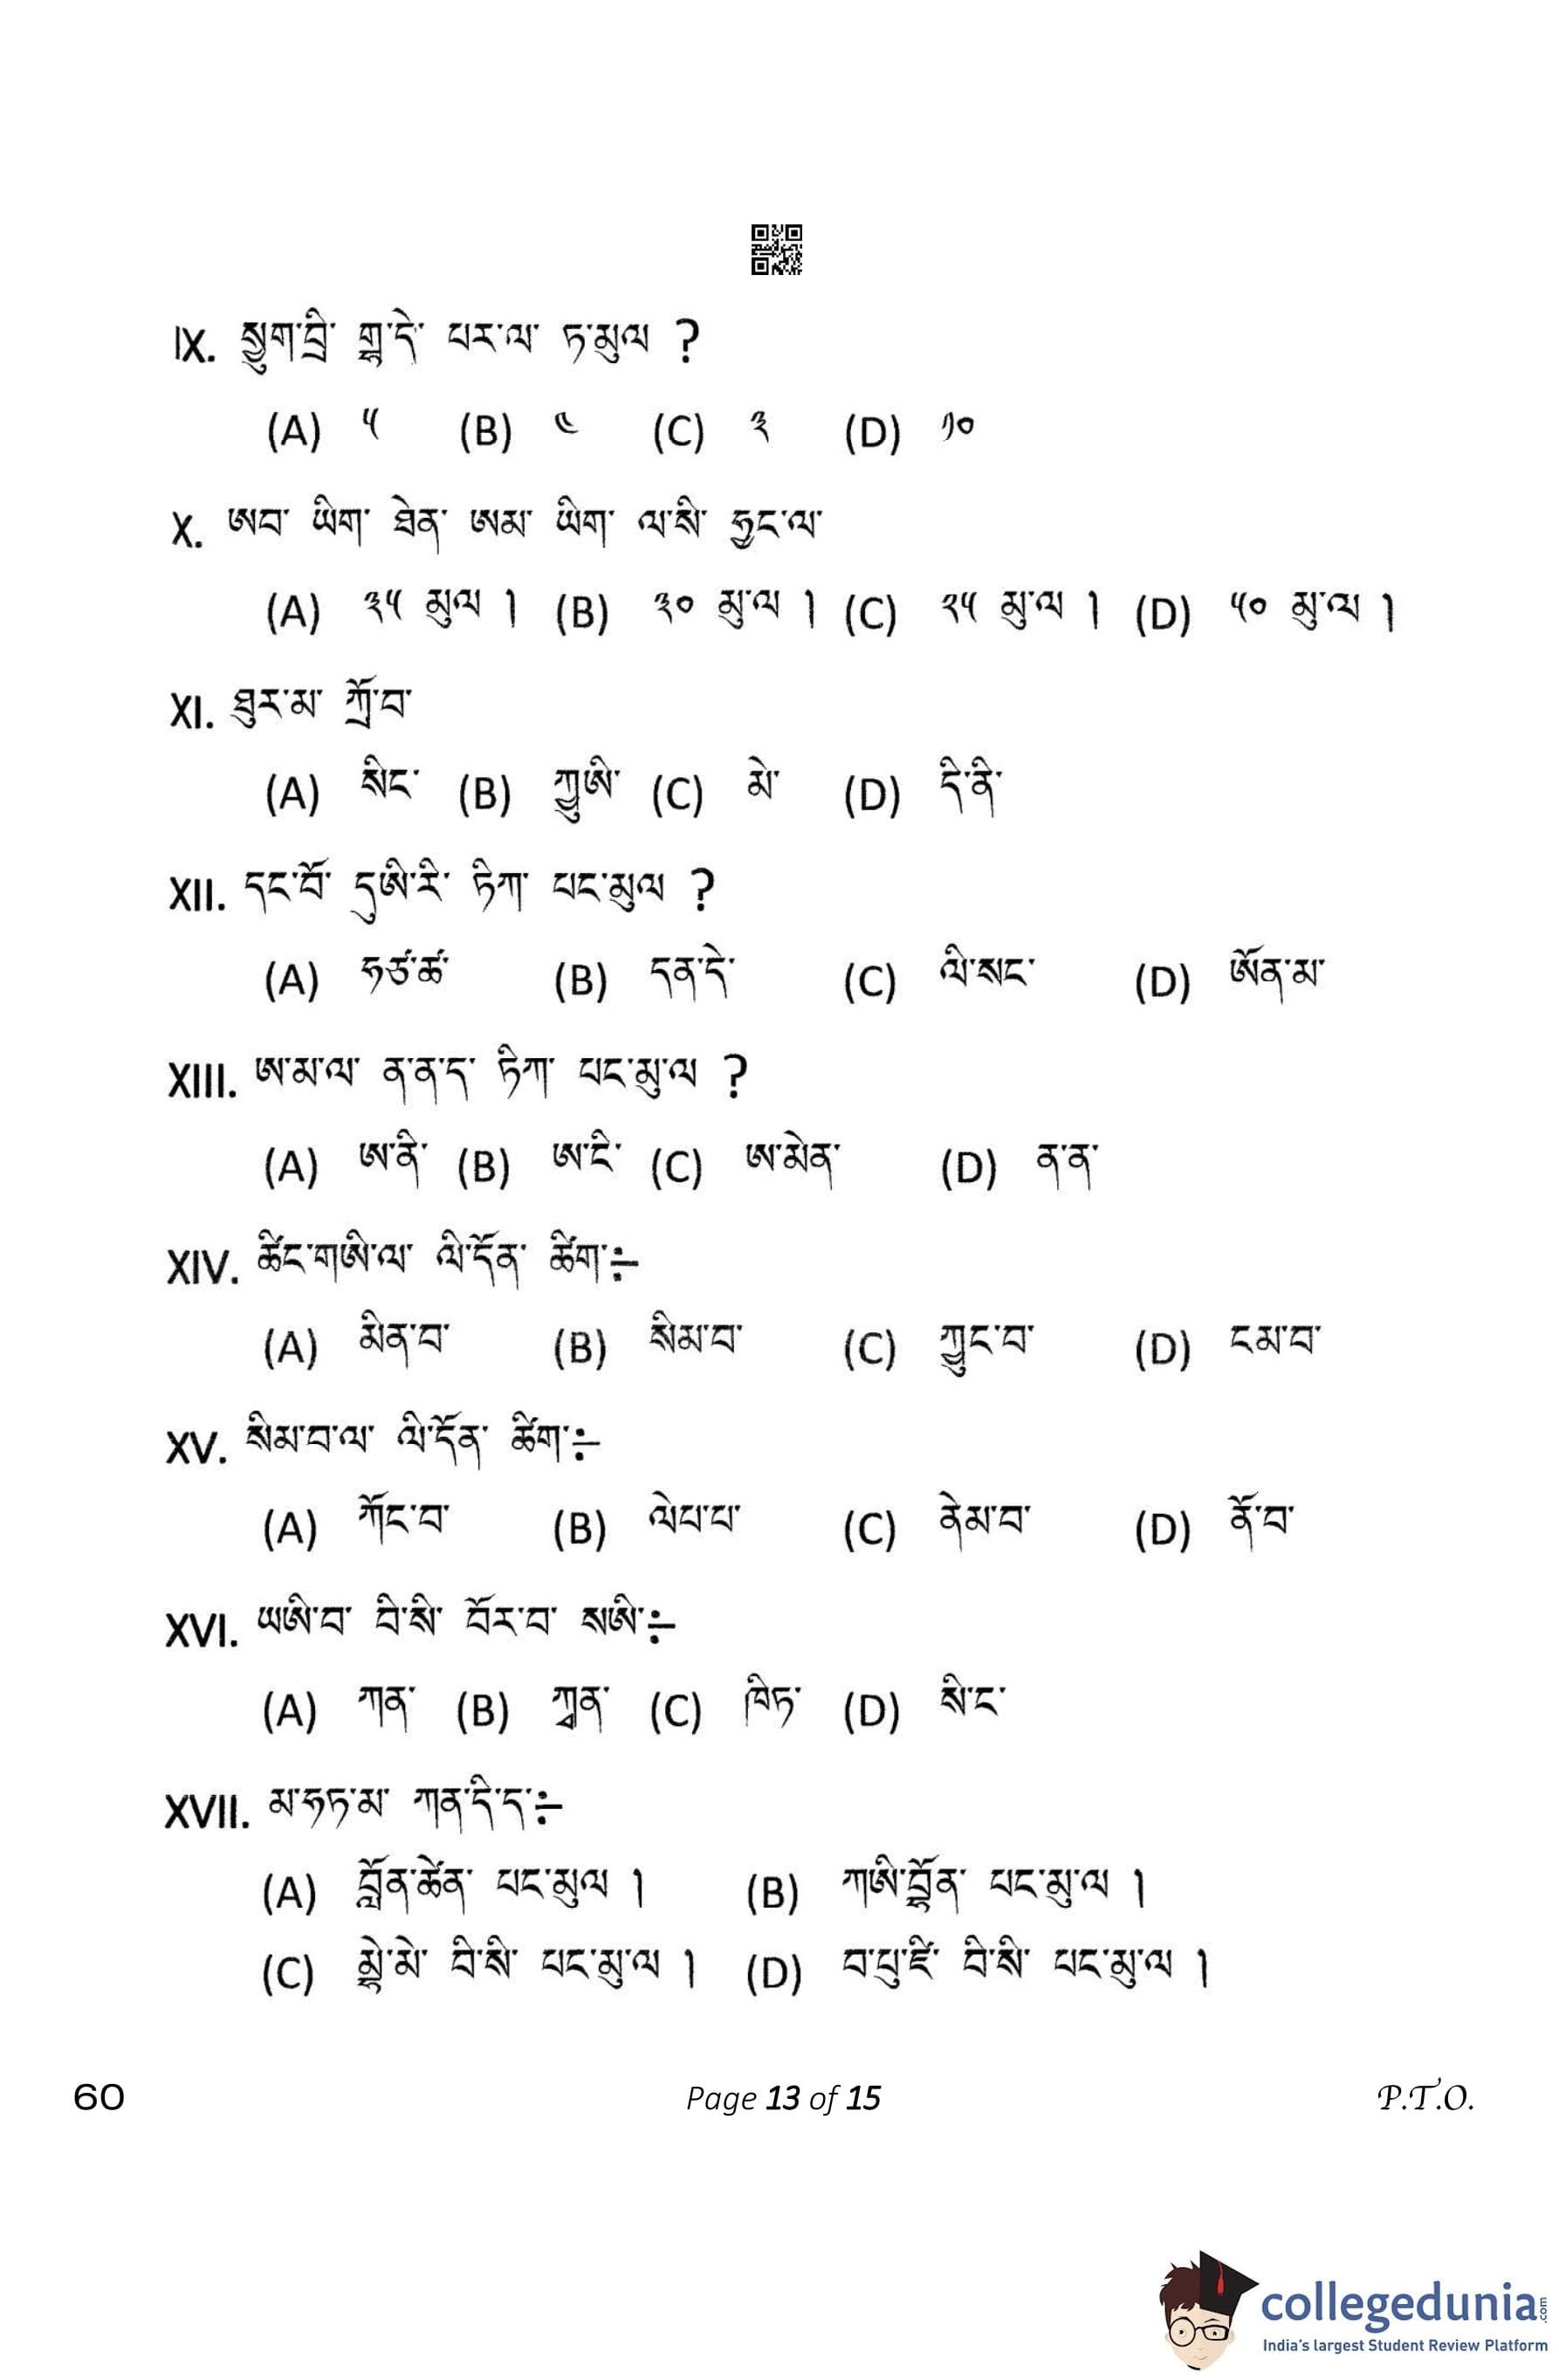 IX. སྱུག་བྲི་ གྷ་དེ་ པར་ལ་ ཏ་མུལ ?
(A) ५ (B) ༤ (C) ३ (D) १०
X. ཨབ་ ཡིག་ ཐེན་ ཨམ་ ཡིག་ ལ་སི་ ཧྱུང་ལ་
(A) ३५ མུལ । (B) ३० མུ་ལ । (C) २५ མུ་ལ । (D) ५० མུ་ལ །
XI. ཐུར་མ་ ཀྲོ་བ་
(A) སིང་ (B) ཀྱུཨི་ (C) མེ་ (D) དི་ནི་
XII. དང་བོ་ དུཨི་རི་ ཏིཀ་ པང་མུལ ?
(A) ཧཙ་ཚ་ (B) དན་དེ་ (C) ལི་སང་ (D) ཨོན་མ་
XIII. ཨ་མ་ལ་ ན་ན་ད་ ཏིཀ་ པང་མུ་ལ ?
(A) ཨ་ནི་ (B) ཨ་ངི་ (C) ཨ་མེན་ (D) ན་ན་
XIV. ཚིང་གཨི་ལ་ ལི་དོན་ ཚིག་÷
(A) མིན་བ་ (B) སིམ་བ་ (C) ཀྱུང་བ་ (D) ངམ་བ་
XV. སིམ་བ་ལ་ ལི་དོན་ ཚིག་÷
(A) ཀོང་བ་ (B) ལེཔ་པ་ (C) ནེམ་བ་ (D) ནོ་བ་
XVI. ཡཨི་བ་ བི་སི་ བོར་བ་ སཨི་÷
(A) ཀན་ (B) ཀྭན་ (C) ཁིཏ་ (D) སི་ང་
XVII. མ་ཧཏ་མ་ ཀན་དི་ད་÷
(A) བློན་ཆེན་ པང་མུལ । (B) ཀཨི་བྷོན་ པང་མུ་ལ །
(C) མྷེ་མེ་ བི་སི་ པང་མུ་ལ । (D) བ་པུ་ཛི་ བི་སི་ པང་མུ་ལ །
60 Page 13 of 15 P.T.O.
collegedunia.com
India's largest Student Review Platform